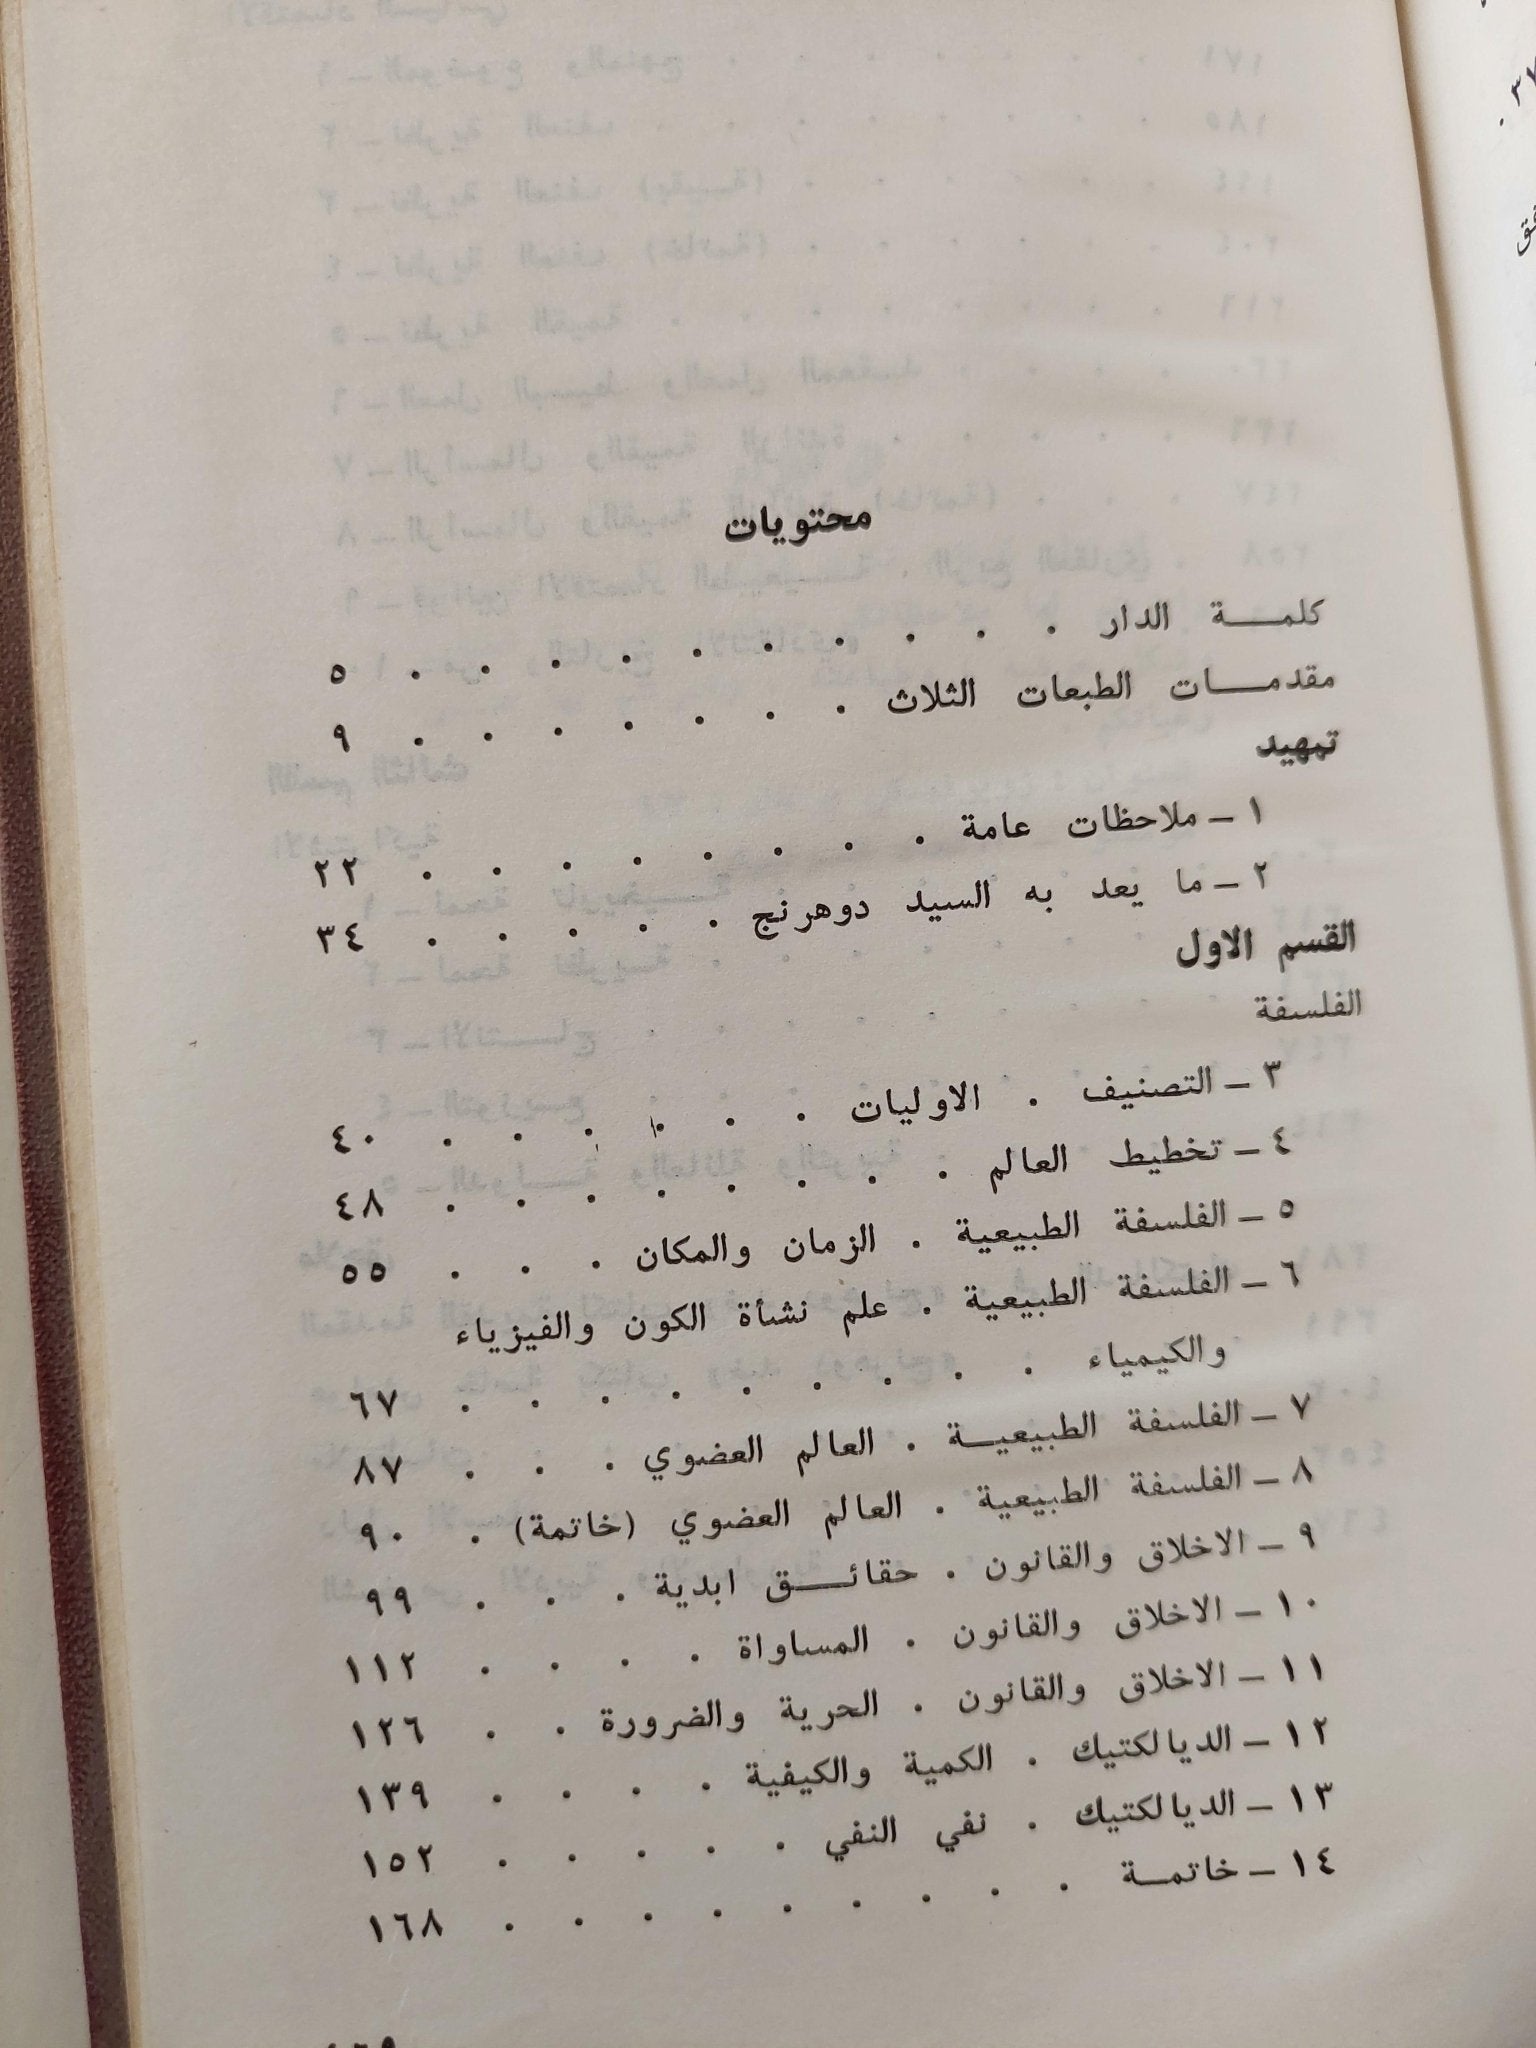 محتويات
كلمـــة الدار . . . . . . . . . . ٥
مقدمـــات الطبعات الثلاث . . . . . . . ٩
تمهيد
١ – ملاحظات عامة . . . . . . . . ٢٢
٢ – ما يعد به السيد دوهرنج . . . . . ٣٤
القسم الاول
الفلسفة
٣ – التصنيف . الاوليات . . . . . . ٤٠
٤ – تخطيط العالم . . . . . . . . ٤٨
٥ – الفلسفة الطبيعية . الزمان والمكان . . . ٥٥
٦ – الفلسفة الطبيعية . علم نشأة الكون والفيزياء
والكيمياء . . . . . . . . . ٦٧
٧ – الفلسفة الطبيعيــة . العالم العضوي . . . ٨٧
٨ – الفلسفة الطبيعية . العالم العضوي (خاتمة) . ٩٠
٩ – الاخلاق والقانون . حقائـــق ابدية . . . ٩٩
١٠ – الاخلاق والقانون . المساواة . . . . ١١٢
١١ – الاخلاق والقانون . الحرية والضرورة . . ١٢٦
١٢ – الديالكتيك . الكمية والكيفية . . . . ١٣٩
١٣ – الديالكتيك . نفي النفي . . . . . ١٥٢
١٤ – خاتمــة . . . . . . . . . ١٦٨